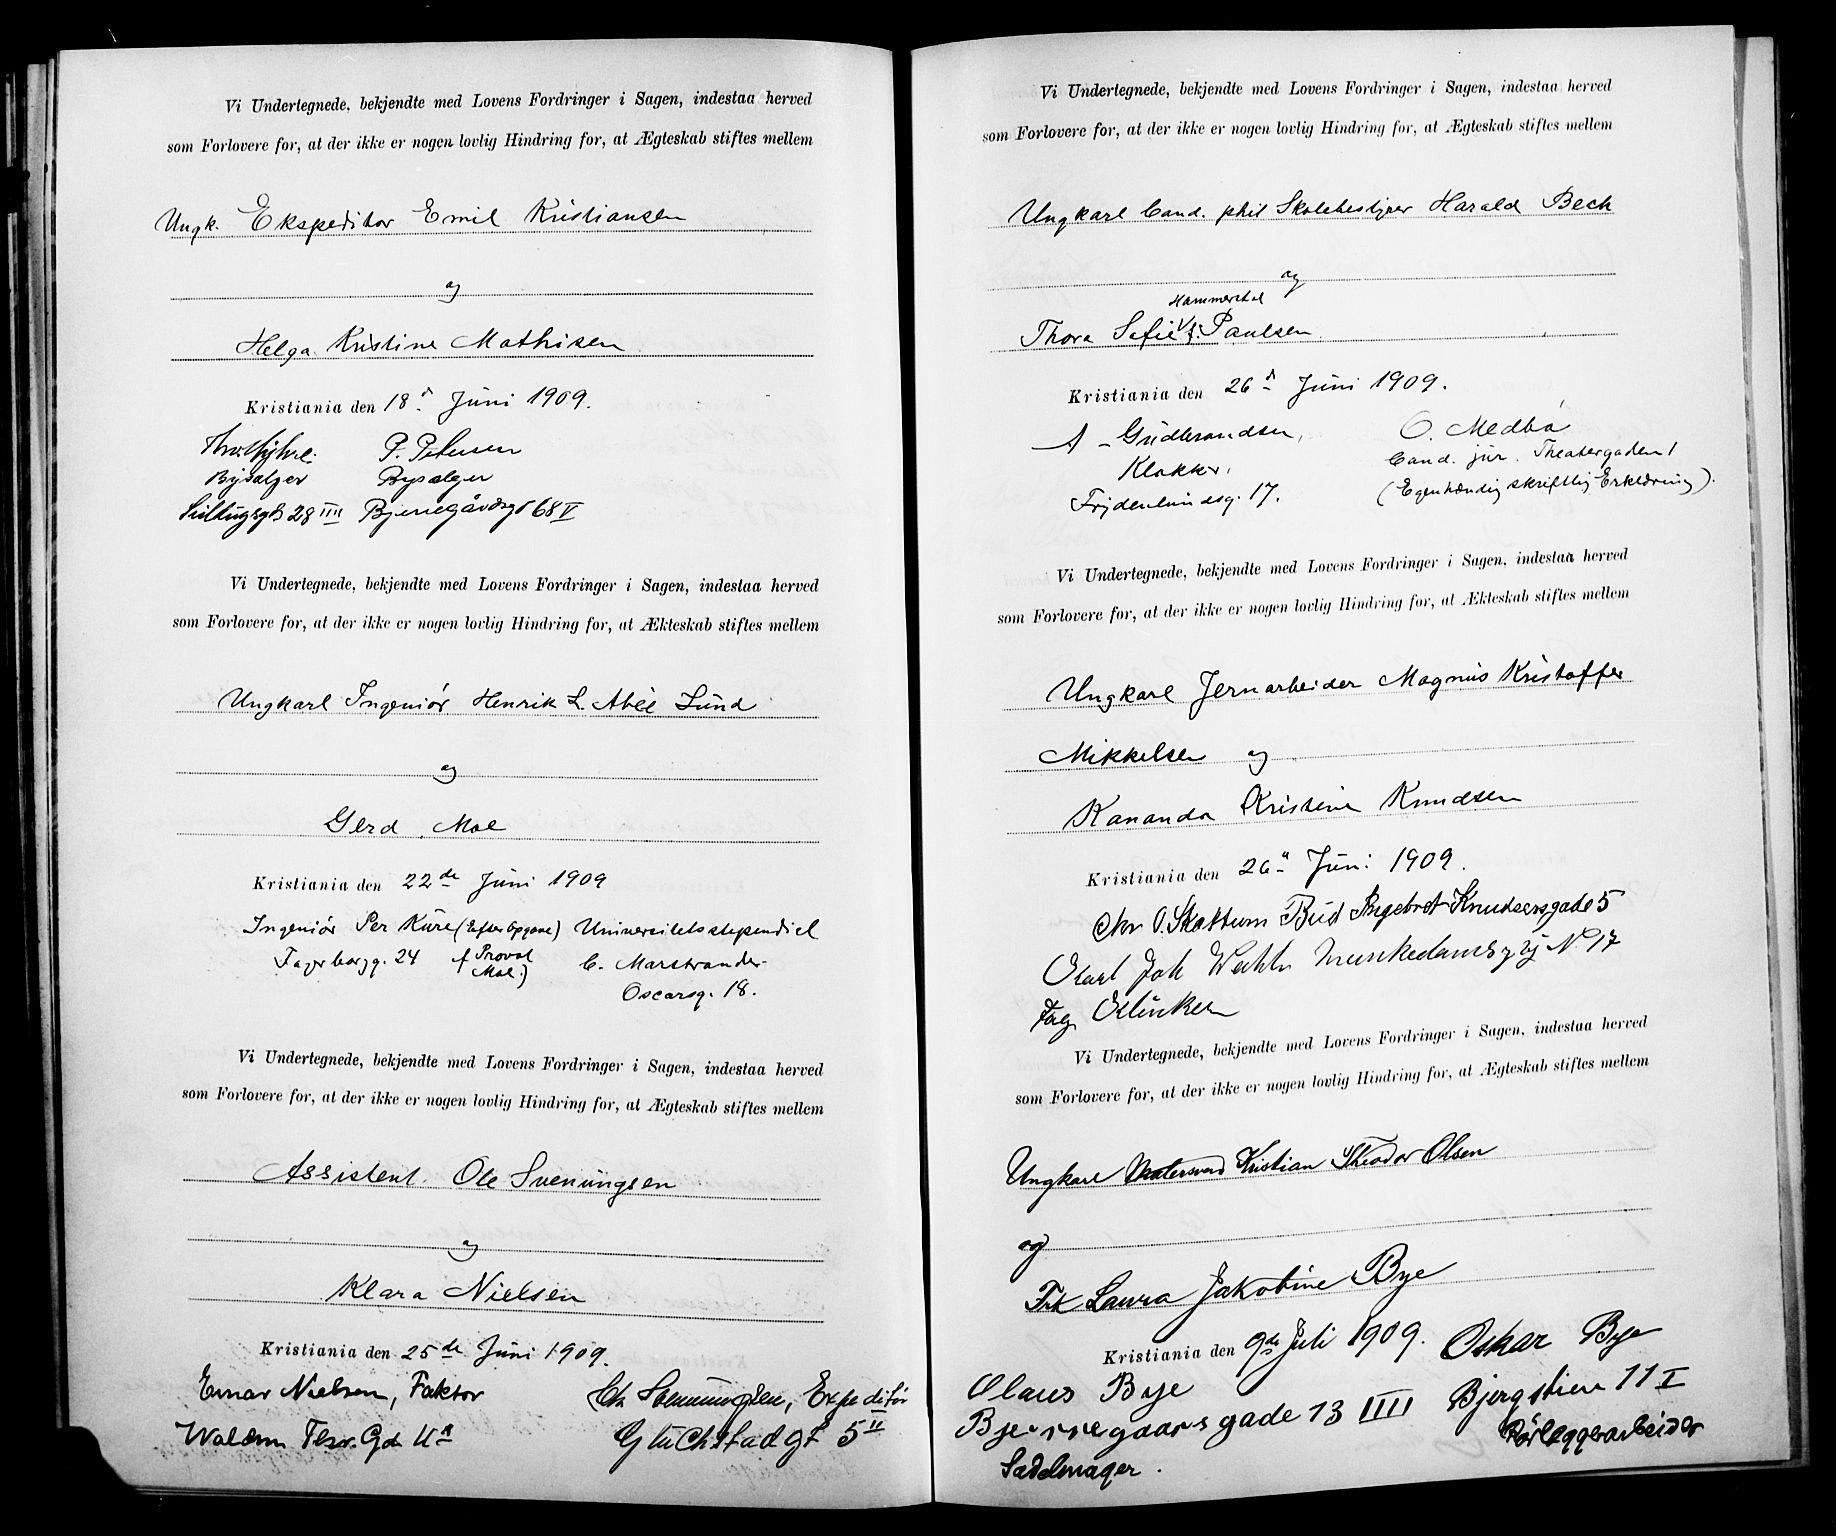 Vi Undertegnede, bekjendte med Lovens Fordringer i Sagen, indestaa herved
som Forlovere for, at der ikke er nogen lovlig Hindring for, at Ægteskab stiftes mellem
Ungk. Ekspeditor Emil Kristiansen
og
Helga Kristine Mathisen
Kristiania den 18d Juni 1909.
P. Petersen
Bysælger Bysælger
28 IIII Bjerregårdsgt 68 V
Vi Undertegnede, bekjendte med Lovens Fordringer i Sagen, indestaa herved
som Forlovere for, at der ikke er nogen lovlig Hindring for, at Ækteskab stiftes mellem
Ungkarl Ingeniør Henrik L. Abel Lund
og
Gerd Moe
Kristiania den 22de Juni 1909
Ingeniør Per Kure (Efter Opgave) Universitetsstipendiet
Fagerborgg. 24 f Provst C. Marstrander
Moe.) Oscarsg. 18.
Vi Undertegnede, bekjendte med Lovens Fordringer i Sagen, indestaa herved
som Forlovere for, at der ikke er nogen lovlig Hindring for, at Ægteskab stiftes mellem
Assistent Ole Svenungsen
og
Klara Nielsen
Kristiania den 25de Juni 1909.
Einar Nielsen, Faktor Chr Svenungsen, Expeditør
Waldem Thr. Gd 11a Glückstadgt 5 II
Vi Undertegnede, bekjendte med Lovens Fordringer i Sagen, indestaa herved
som Forlovere for, at der ikke er nogen lovlig Hindring for, at Ægteskab stiftes mellem
Ungkarl Cand. phil Skolebestyrer Harald Beck
og
Hammerstad
Thora Sofie f. Paulsen
Kristiania den 26d Juni 1909.
A. Gudbrandsen, O. Medbø
Klokker, Cand. jur. Theatergaden 1
Frydenlundsg. 17. (Egenhændig skriftlig Erklæring).
Vi Undertegnede, bekjendte med Lovens Fordringer i Sagen, indestaa herved
som Forlovere for, at der ikke er nogen lovlig Hindring for, at Ækteskab stiftes mellem
Ungkarl Jernarbeider Magnus Kristoffer
Mikkelsen og
Kananda Kristine Knudsen
Kristiania den 26d Juni 1909.
Chr O. Skattum Bud Ingebret Knudsensgade 5
Karl Joh Munkedamsvej No 17
Vi Undertegnede, bekjendte med Lovens Fordringer i Sagen, indestaa herved
som Forlovere for, at der ikke er nogen lovlig Hindring for, at Ægteskab stiftes mellem
Ungkarl Kristian Theodor Olsen
og
Frk Laura Jakobine Bye
Kristiania den 9de Juli 1909. Oskar Bye
Olaus Bye Bjergstien 11 I
Bjerregaardsgade 13 IIII Rørleggerarbeider
Sadelmager.